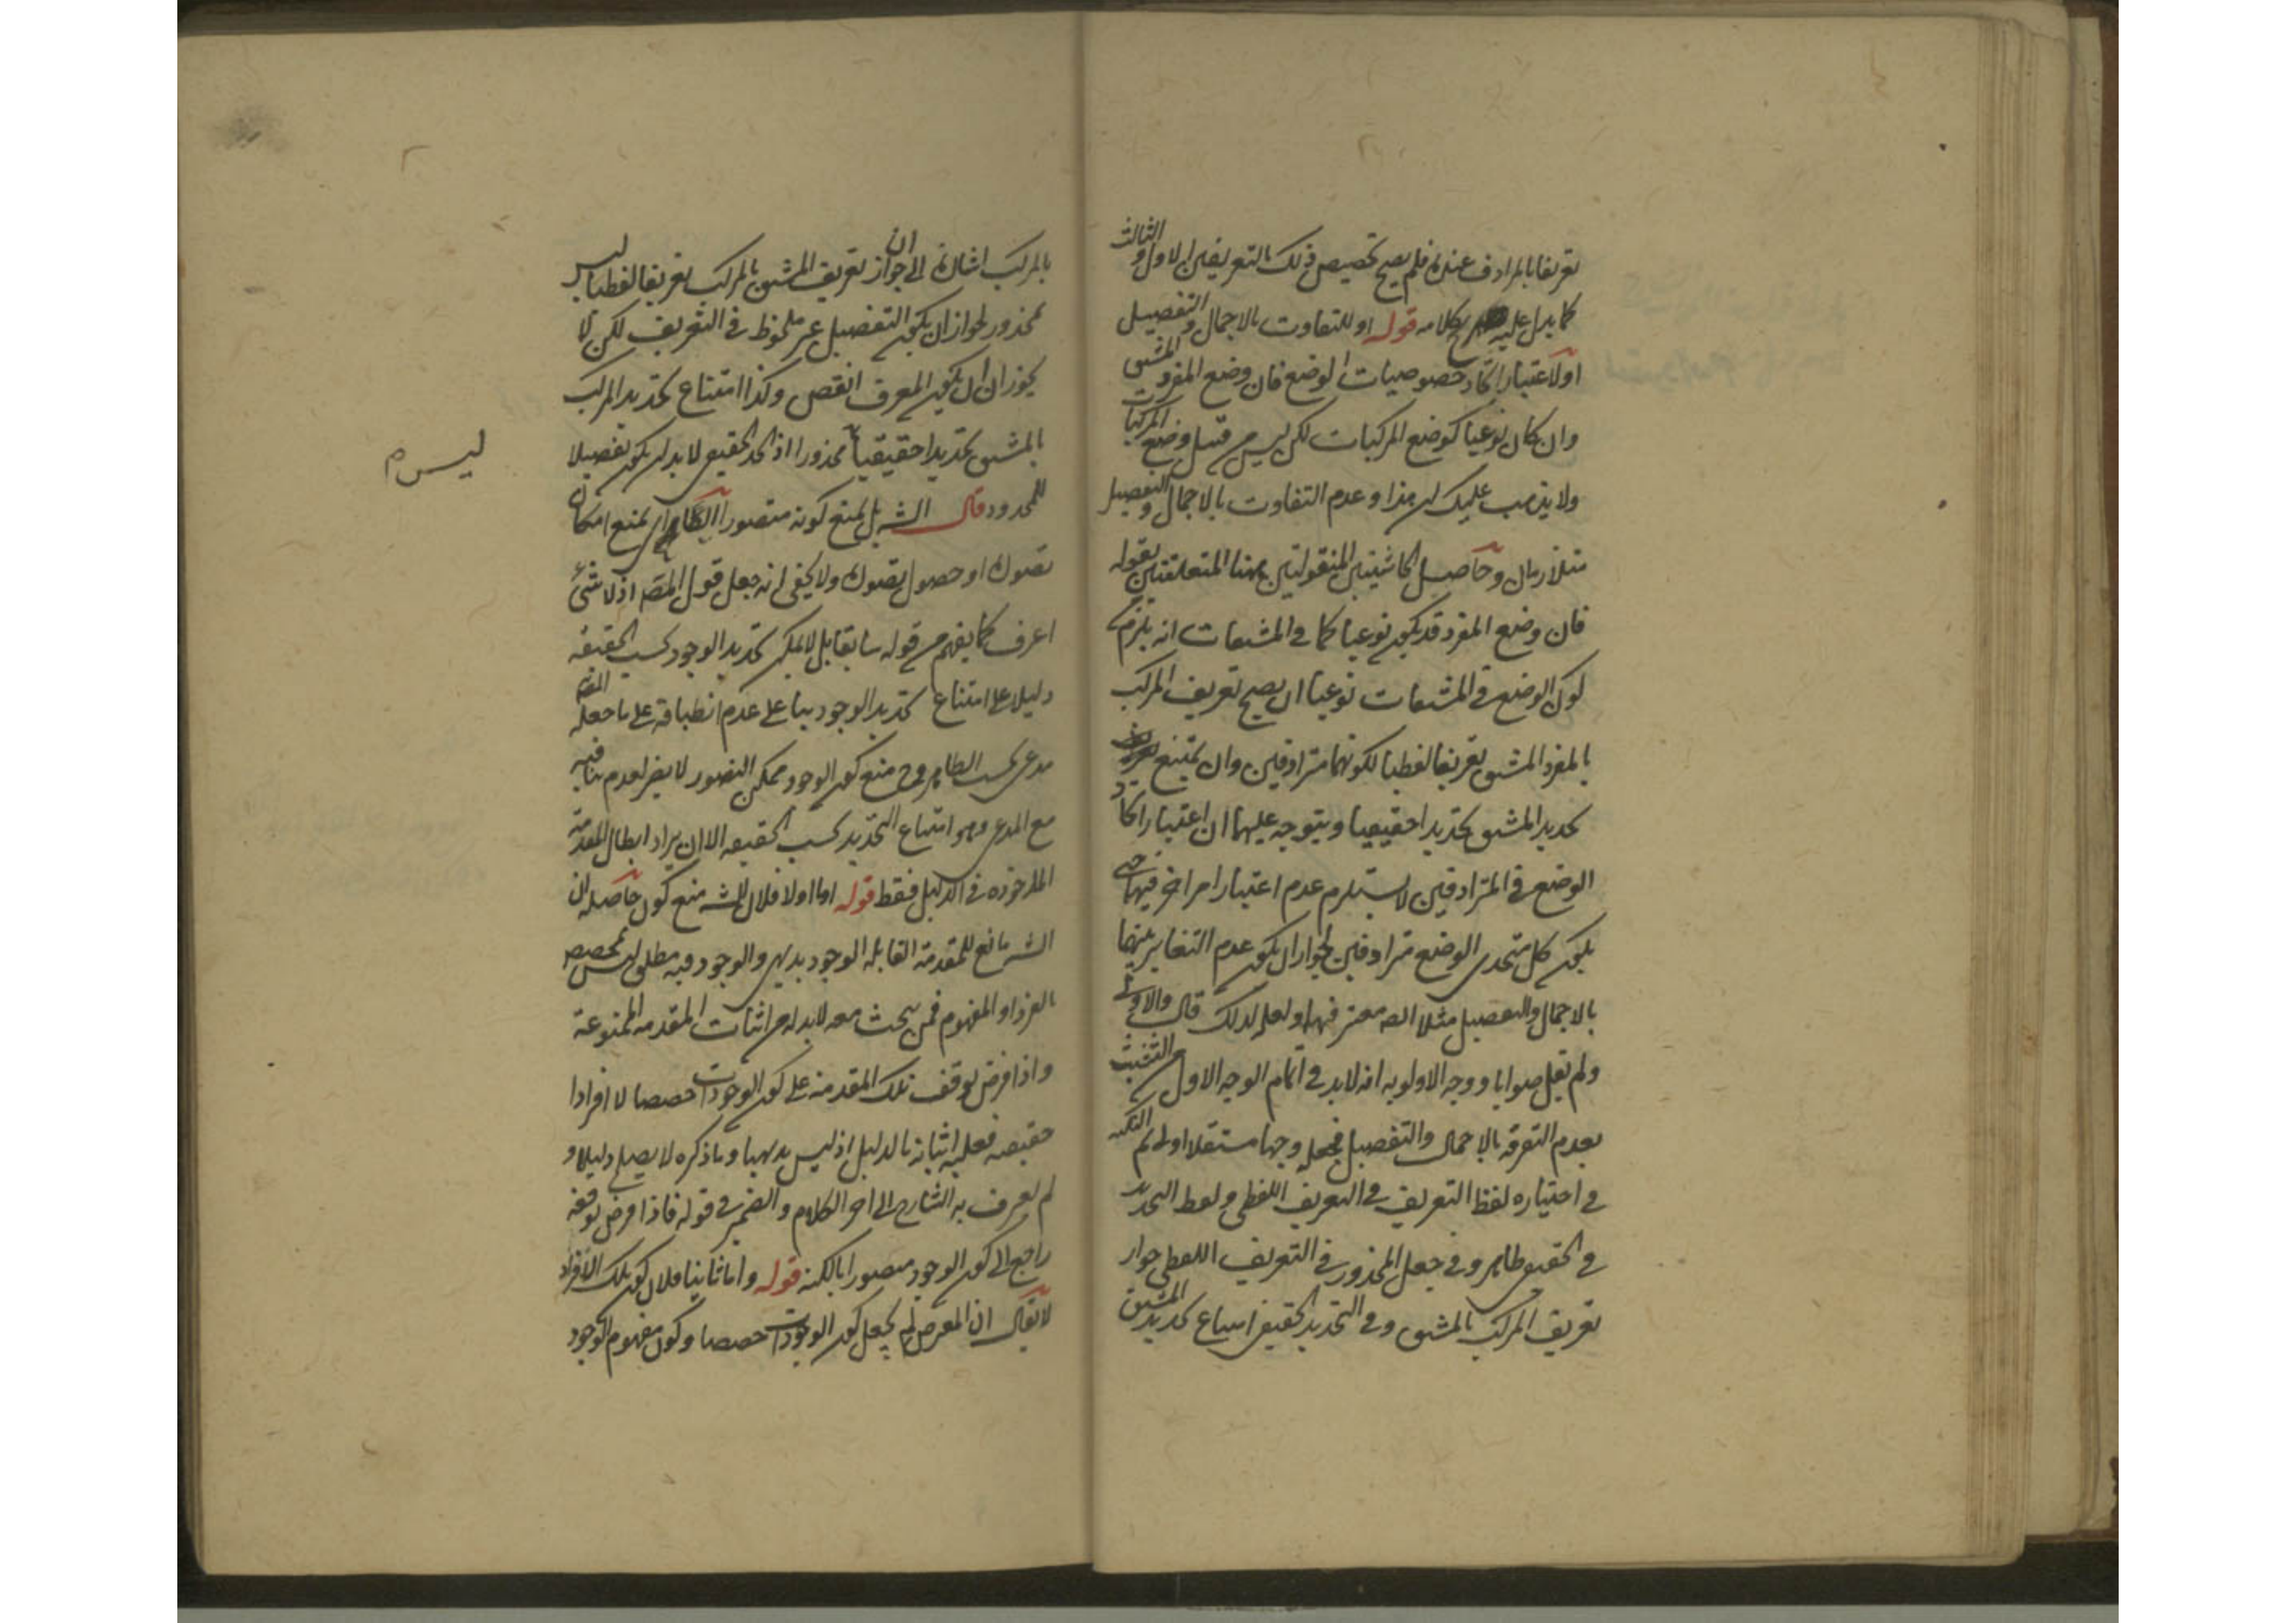 تعريفا بالمرادف عنده فلم يصح تخصيص ذلك بالتعريفين الاول والثالث
كما يدل عليه صريح كلامه قوله او للتفاوت بالاجمال والتفصيل
اولا عتبار اتحاد خصوصيات الوضع فان وضع المفرد المشتق
وان كان نوعيا كوضع المركبات لكن ليس من قبيل وضع المركبات
ولا يذهب عليك ان هذا وعدم التفاوت بالاجمال والتفصيل
متلازمان وحاصل الحاشيتين المنقولتين ههنا المتعلقتين بقوله
فان وضع المفرد قد يكون نوعيا كما في المشتقات انه يلزم من
كون الوضع في المشتقات نوعيا ان يصح تعريف المركب
بالمفرد المشتق تعريفا لفظيا لكونهما مترادفين وان يمتنع
تحديد المشتق تحديدا حقيقيا ويتوجه عليهما ان اعتبار اتحاد
الوضع في المترادفين لا يستلزم عدم اعتبار امر اخر فيهما حتى
يكون كل متحدى الوضع مترادفين لجواز ان يكون عدم التغاير بينهما
بالاجمال والتفصيل مثلا ايضا معتبرا فيهما ولعله لذلك قال والاولى
ولم يقل صوابا ووجه الاولوية انه لابد في اتمام الوجه الاول من التشبث
بعدم التفرقة بالاجمال والتفصيل فجعله وجها مستقلا اولى ثم النكتة
في اختياره لفظ التعريف في التعريف اللفظي ولفظ التحديد
في الحقيقي ظاهر وفي جعل المحذور في التعريف اللفظي جواز
تعريف المركب بالمشتق وفي التحديد الحقيقي امتناع تحديد المشتق
بالمركب اشارة الى ان جواز تعريف المشتق بالمركب تعريفا لفظيا ليس
بمحذور لجواز ان يكون التفصيل غير ملحوظ في التعريف لكن لا
يجوز ان يكون المعرف انقص وكذا امتناع تحديد المركب
بالمشتق تحديدا حقيقيا محذورا اذ الحد الحقيقي لابد ان يكون تفصيلا
ليس م
للمحدود قال الشه بل نمنع كونه متصورا اى نمنع امكان
تصوره او حصول تصوره ولا يخفى انه جعل قول المصه اذ لا شئ
اعرف كما يفهم من قوله سابقا بل لا يمكن تحديد الوجود بحسب الحقيقة
دليلا على امتناع تحديد الوجود بنا على عدم انطباقه على ما جعله المصه
مدعى بحسب الظاهر وح منع كون الوجود ممكن التصور لا يضر لعدم منافيه
مع المدعى وهو امتناع التحديد بحسب الحقيقة الا ان يراد ابطال المقدمة
الماخوذه في الدليل فقط قوله اما اولا فلان للشه منع كون حاصله ان
الشه مانع للمقدمة القابلة الوجود بديهى والوجود فيه مطلق ليس بمخصص
بالفرد او المفهوم فمن يبحث معه لابد له من اثبات المقدمة الممنوعة
واذا فرض توقف تلك المقدمة على كون الوجودات حصصا لا افرادا
حقيقية فعليه اثباته بالدليل اذ ليس بديهيا وما ذكره لا يصلح دليلا و
لم يعرف به الشارح الى اخر الكلام والضمير في قوله فاذا فرض توقفه
راجع الى كون الوجود متصورا بالكنه قوله واما ثانيا فلان كون تلك الافراد
لا يقال ان المعرض لم يجعل كون الوجودات حصصا وكون مفهوم الوجود